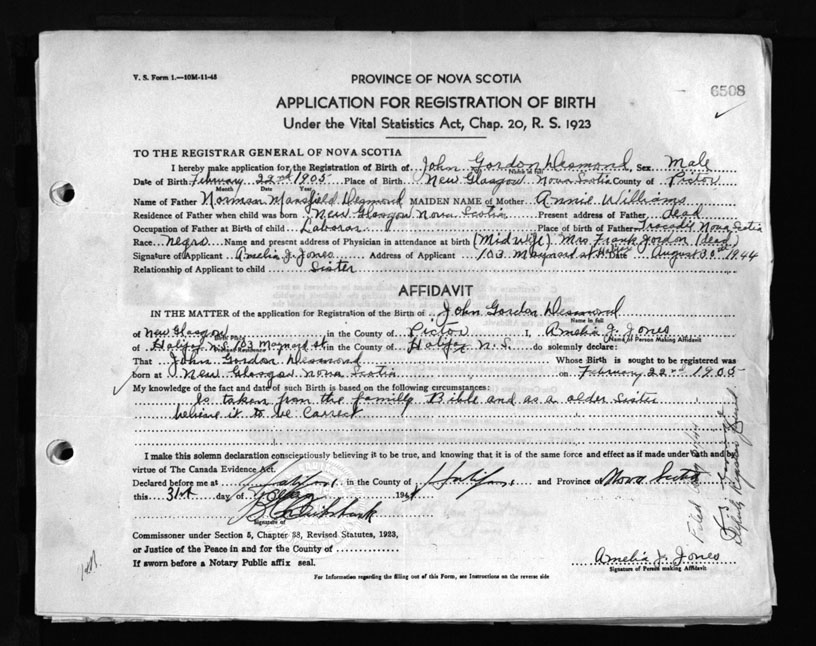 V. S. Form 1.—10M-11-43
6508
PROVINCE OF NOVA SCOTIA
APPLICATION FOR REGISTRATION OF BIRTH
Under the Vital Statistics Act, Chap. 20, R. S. 1923
TO THE REGISTRAR GENERAL OF NOVA SCOTIA
I hereby make application for the Registration of Birth of John Gordon Desmond, Sex Male
Name in full
Date of Birth February 22nd 1905 Place of Birth New Glasgow Nova Scotia County of Pictou
Month Date Year
Name of Father Norman Mansfield Desmond MAIDEN NAME of Mother Annie Williams
Residence of Father when child was born New Glasgow Nova Scotia Present address of Father dead
Occupation of Father at Birth of child Laborar Place of birth of Father Tracadie Nova Scotia
Race Negro Name and present address of Physician in attendance at birth (Midwife) Mrs Frank Jordon (dead)
Signature of Applicant Amelia J. Jones Address of Applicant 103 Maynard st Halifax Date August 30st 1944
Relationship of Applicant to child Sister
AFFIDAVIT
IN THE MATTER of the application for Registration of the Birth of John Gordon Desmond
Name in full
of New Glasgow in the County of Pictou I, Amelia J. Jones
Birth Place
Name of Person Making Affidavit
of Halifax N.S. 103 Maynard st in the County of Halifax N.S. do solemnly declare:
Residence
That John Gordon Desmond Whose Birth is sought to be registered was
born at New Glasgow Nova Scotia on February 22nd 1905
My knowledge of the fact and date of such Birth is based on the following circumstances:
Is taken from the family Bible and as a older Sister
believe it to be Carrect
I make this solemn declaration conscientiously believing it to be true, and knowing that it is of the same force and effect as if made under oath and by
virtue of The Canada Evidence Act.
Declared before me at Halifax in the County of Halifax and Province of Nova Scotia
this 31st day of 194
Signature of
Commissioner under Section 5, Chapter 38, Revised Statutes, 1923,
or Justice of the Peace in and for the County of
If sworn before a Notary Public affix seal.
Amelia J. Jones
Signature of Person making Affidavit
For Information regarding the filling out of this Form, see Instructions on the reverse side